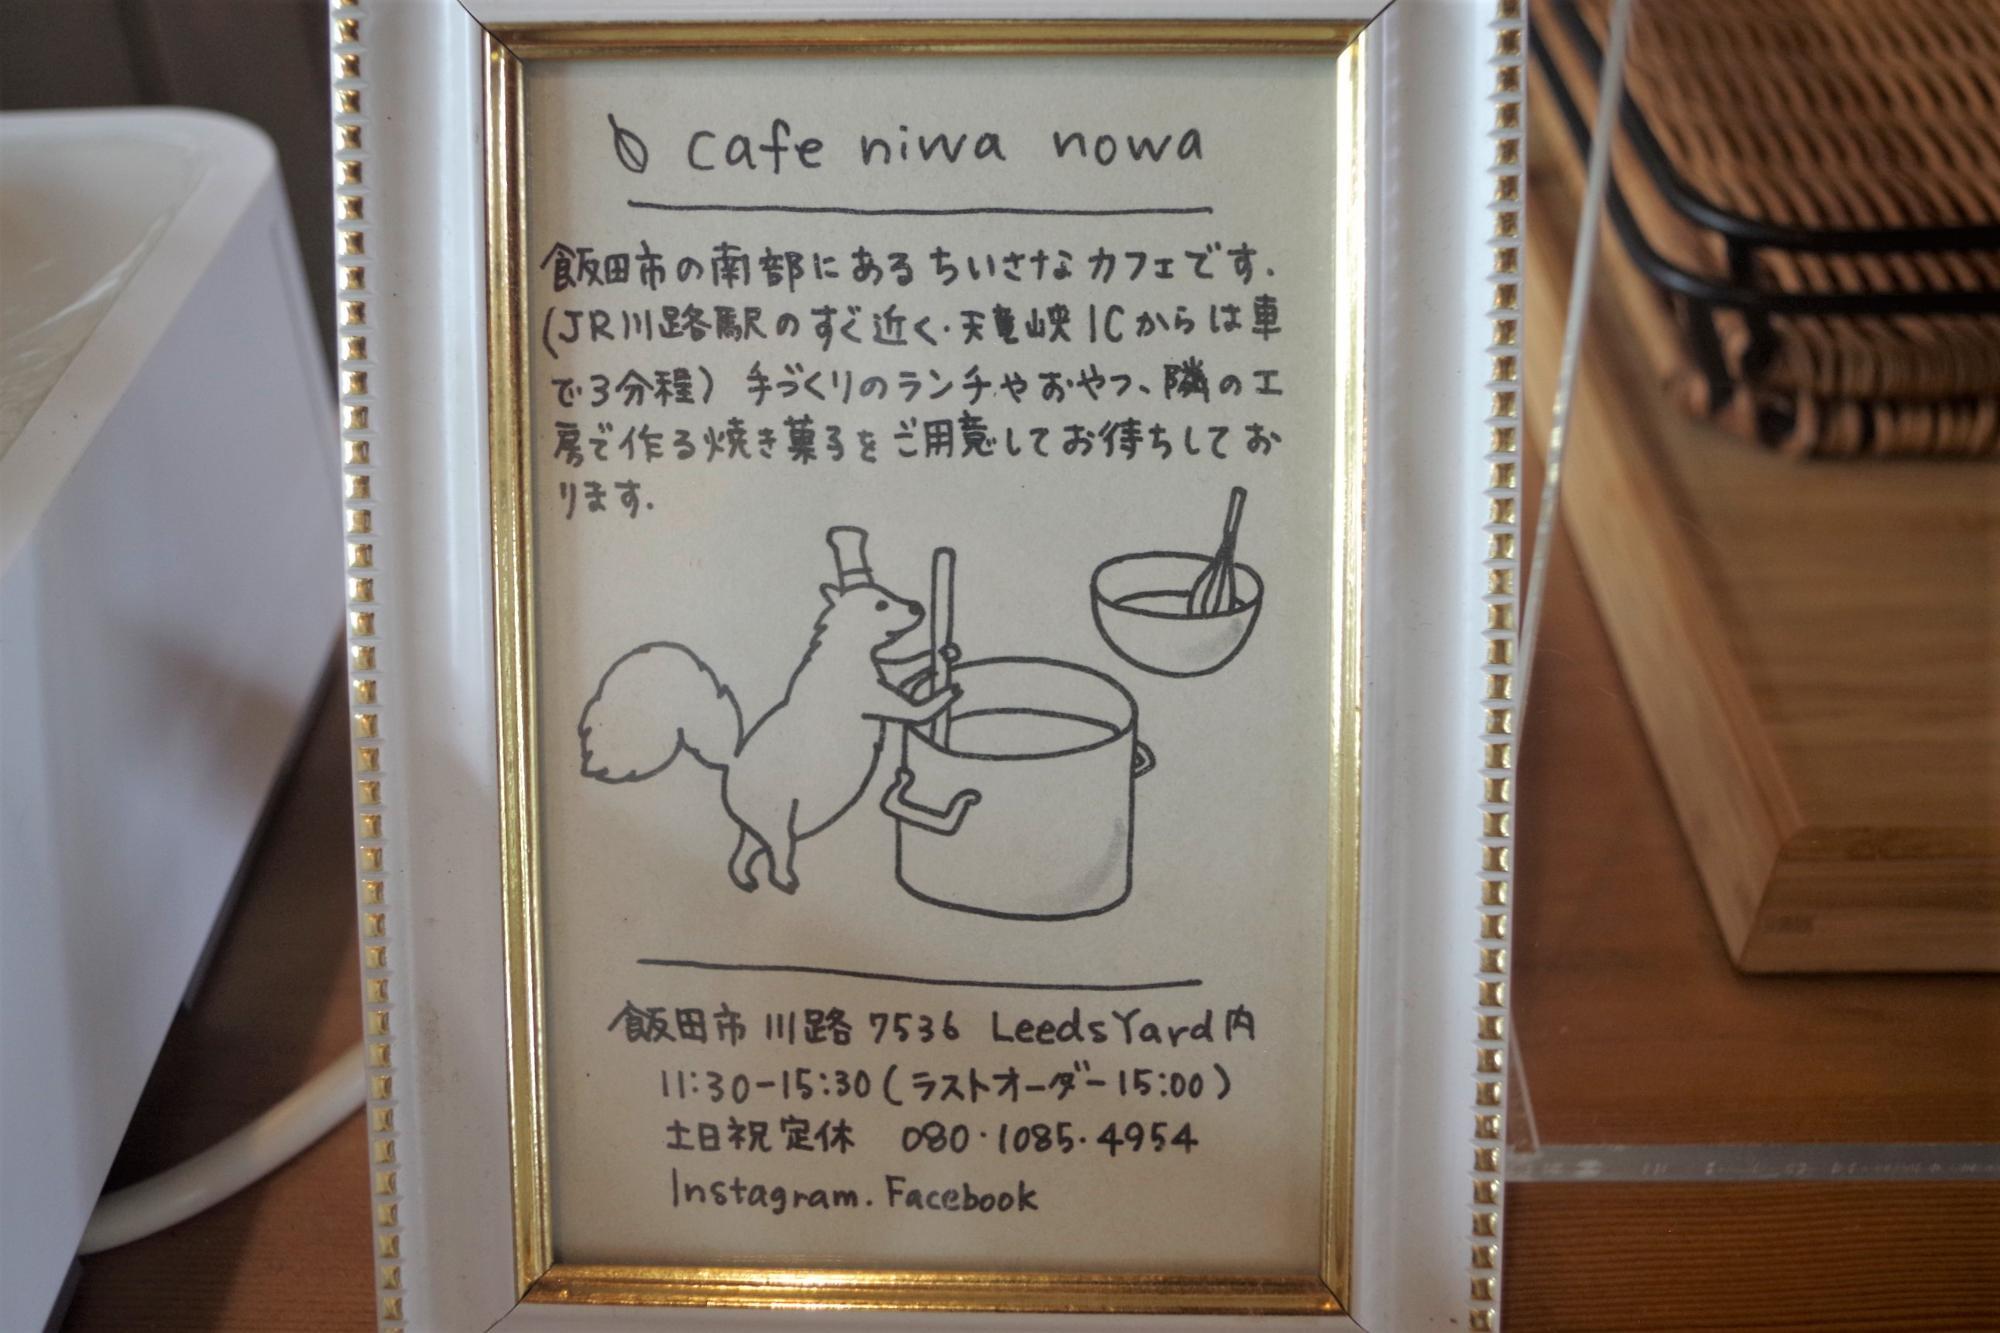 cafe niwa nowa
飯田市の南部にあるちいさなカフェです.
(JR川路駅のすぐ近く·天竜峡ICからは車
で3分程) 手づくりのランチやおやつ、隣の工
房で作る焼き菓子をご用意してお待ちしてお
ります.
飯田市 川路 7536 LeedsYard内
11:30-15:30(ラストオーダー15:00)
土日祝定休 080·1085·4954
Instagram. Facebook